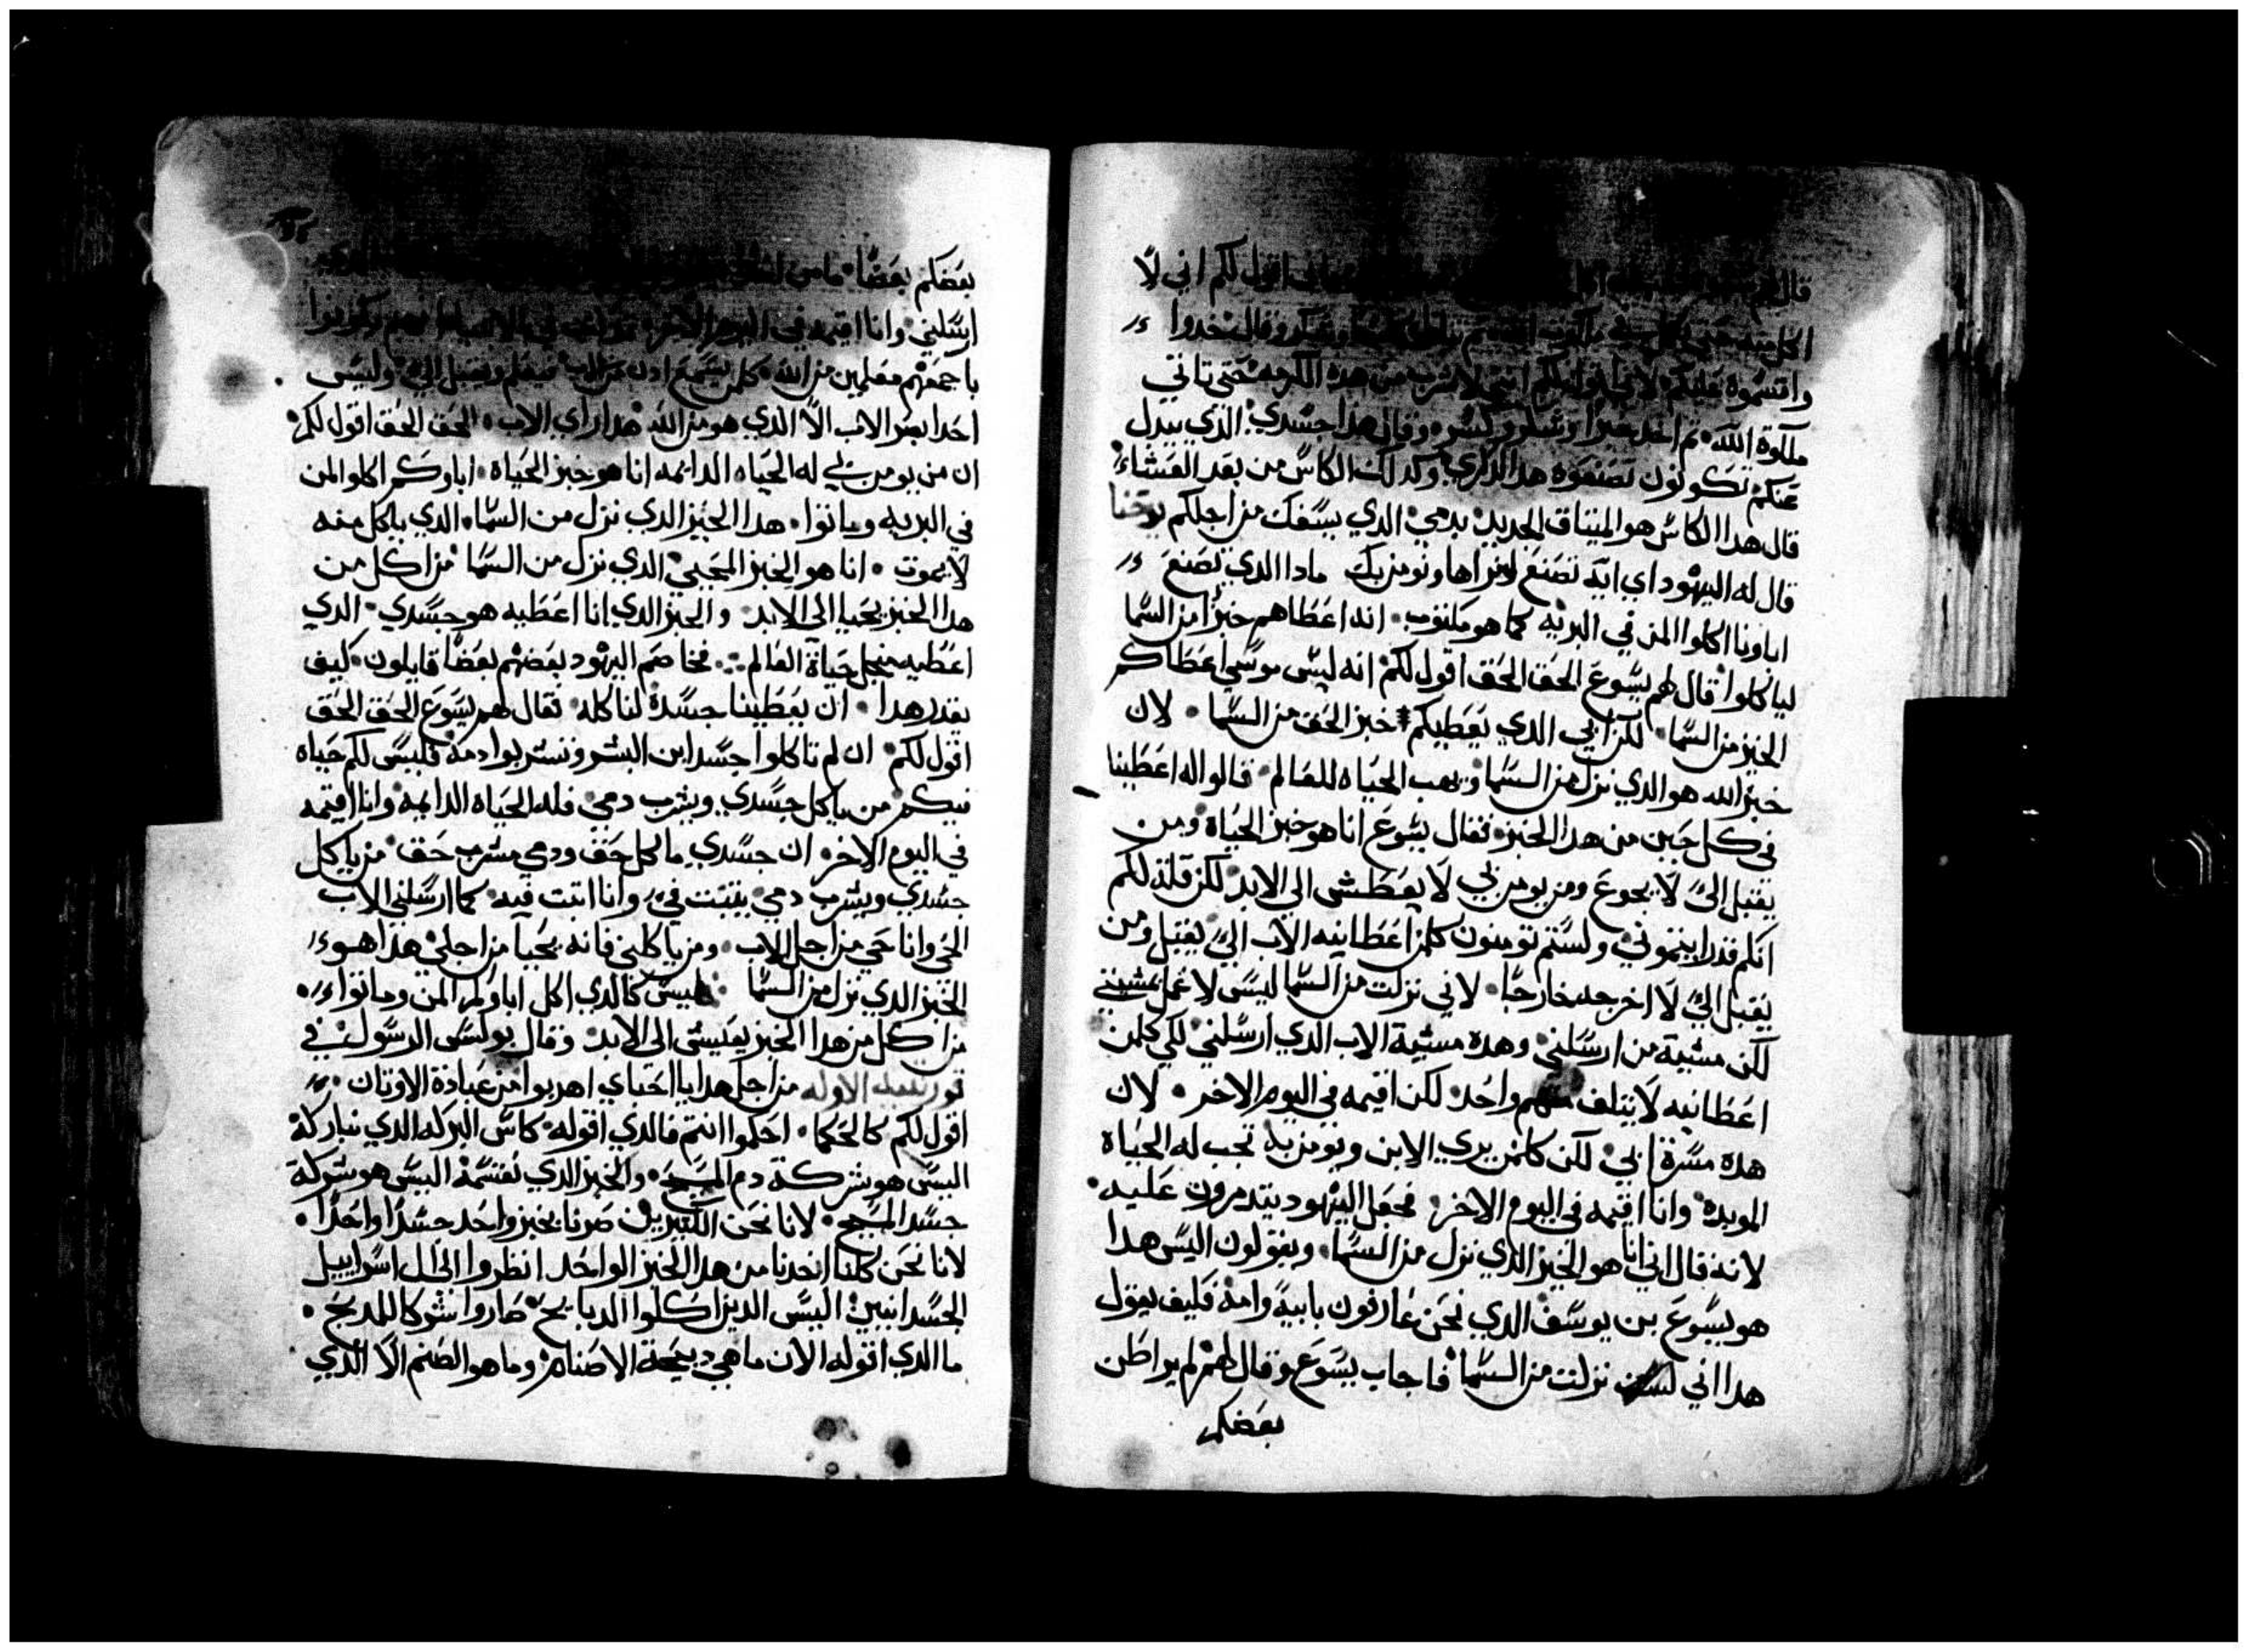 قال لهم اقول لكم اني لا
اكل منه حتى وشكر وقال خدوا
واقتسموه عليكم لاني اقول لكم انني لا اشرب من هده الكرمه حتى تاتي
ملكوة الله ثم اخد خبزا وشكر وكسر وقال هدا جسدي الدي يبدل
عنكم تكونون تصنعوه هدا لدكري وكدلك الكاس من بعد العشاء
قال هدا الكاس هو الميتاق الجديد بدمي الدي يسفك من اجلكم يوحنا
قال له اليهود اي ايه تصنع لنراها ونومن بك مادا الدي تصنع
اباونا اكلوا المن في البريه كما هو مكتوب انه اعطاهم خبزا من السما
لياكلوا قال لهم يسوع الحق الحق اقول لكم انه ليس موسي اعطاكم
الخبز من السما لكن ابي الدي يعطيكم خبز الحق من السما لان
خبز الله هو الدي نزل من السما ويهب الحياه للعالم قالوا له اعطينا
في كل حين من هدا الخبز فقال يسوع انا هو خبز الحياة ومن
يقبل الي لا يجوع ومن يومن بي لا يعطش الي الابد لكن قلت لكم
انكم قد رايتموني ولستم تومنون كلمن اعطانيه الاب الي يقبل ومن
يقبل الي لا اخرجه خارجا لاني نزلت من السما ليس لاعمل بمشيتي
لكن مشية من ارسلني وهده مشية الاب الدي ارسلني لكي كلمن
اعطانيه لا يتلف منهم واحد لكن اقيمه في اليوم الاخر لان
هده مسرة ابي لكن كلمن يري الابن ويومن به تجب له الحياه
الموبده وانا اقيمه في اليوم الاخر فجعل اليهود يتدمرون عليه
لانه قال اني انا هو الخبز الدي نزل من السما ويقولون اليس هدا
هو يسوع بن يوسف الدي نحن عارفون بابيه وامه فكيف يقول
هدا اني نزلت من السما فاجاب يسوع وقال لهم لم يراطن
بعضكم
بعضكم بعضا ما من
ارسلني وانا اقيمه في اليوم الاخر مكتوب في الانبياء انهم يكونوا
باجمعهم معلمين من الله كلمن يسمع ادن من الاب فيعلم ويقبل الي وليس
احدا يصر الاب الا الدي هو من الله هدا راي الاب الحق الحق اقول لكم
ان من يومن بي له الحياه الدايمه انا هو خبز الحياة اباوكم اكلوا المن
في البريه وماتوا هدا الخبز الدي نزل من السما الدي ياكل منه
لا يموت انا هو الخبز المحيي الدي نزل من السما من اكل من
هدا الخبز يحيا الي الابد والخبز الدي انا اعطيه هو جسدي الدي
اعطيه منجل حياة العالم فخاصم اليهود بعضهم بعضا قايلون كيف
يقدر هدا ان يعطينا جسده لناكله فقال لهم يسوع الحق الحق
اقول لكم ان لم تاكلوا جسد ابن البشر وتشربوا دمه فليس لكم حياه
فيكم من ياكل جسدي ويشرب دمي فله الحياه الدايمه وانا اقيمه
في اليوم الاخر ان جسدي ماكل حق ودمي مشرب حق من ياكل
جسدي ويشرب دمي يتبت في وانا اتبت فيه كما ارسلني الاب
الحي وانا حي من اجل الاب ومن ياكلني فانه يحيا من اجلي هدا هو
الخبز الدي نزل من السما ليس كالدي اكل اباوكم المن وماتوا
من اكل من هدا الخبز يعيش الي الابد وقال بولس الرسول في
قورنتيه الاوله من اجل هدا يا احباي اهربوا من عبادة الاوتان
اقول لكم كالحكما احكموا انتم فالدي اقوله كاس البركه الدي نباركه
اليس هو شركة دم المسيح والخبز الدي نقسمه اليس هو شركة
جسد المسيح لانا نحن الكتيرين صرنا بخبز واحد جسدا واحدا
لانا نحن كلنا اخدنا من هدا الخبز الواحد انظروا الي ال اسراييل
الجسدانيين اليس الدين اكلوا الدبايح صاروا شركا للمدبح
ما الدي اقوله الان ما هي دبيحة الاصنام وما هو الصنم الا الدي